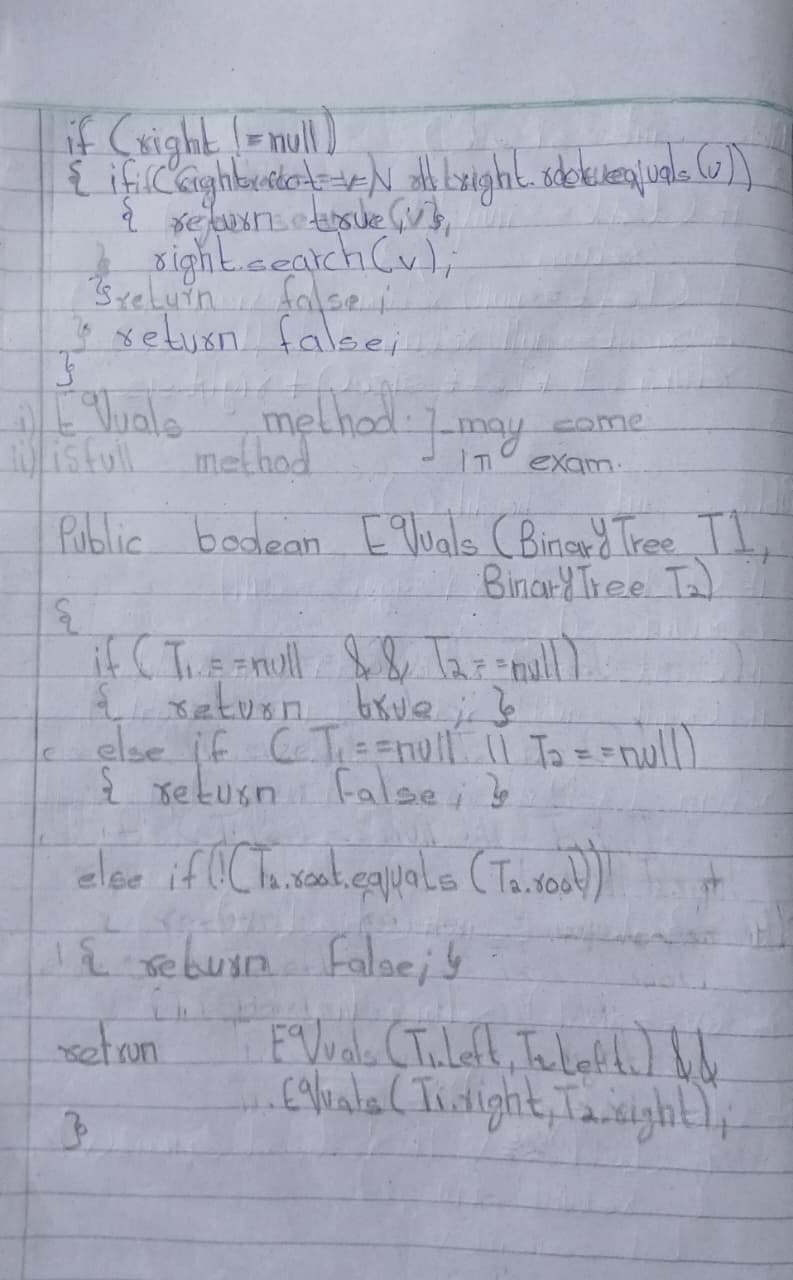 if (right != null)
{ if right. equals (v))
{ return true
right.search(v);
} return false;
} return false;
}
i) EQuals method } may come
ii) isfull method in exam.
Public boolean EQuals (BinaryTree T1,
BinaryTree T2)
{
if (T1 ==null && T2==null)
{ return true; }
else if (T1==null || T2==null)
{ return False; }
else if(!(T2.root.equals (T2.root))
{ return False; }
retrun EQuals (T1.Left, T2.Left.) &&
EQuals (T1.right, T2.right);
}